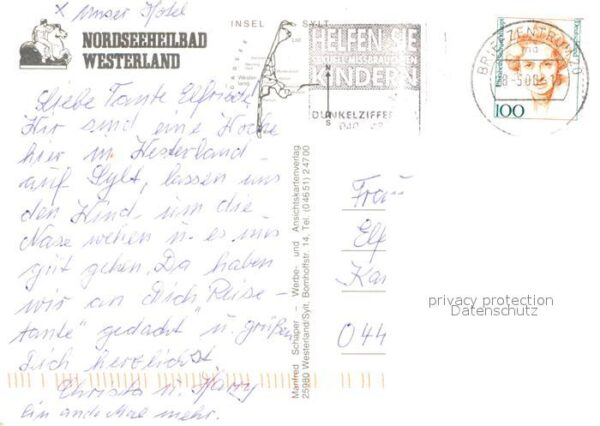 x unser Hotel
NORDSEEHEILBAD
WESTERLAND
INSEL SYLT
HELFEN SIE
SEXUELL MISSBRAUCHTEN
KINDERN
DUNKELZIFFER
040
BRIEFZENTRUM
100
Liebe Tante Elfriede
Wir sind eine Woche
hier in Westerland
auf Sylt, lassen uns
den Wind um die
Nase wehen u. es uns
gut gehen. Da haben
wir an Dich "Reise-
tante" gedacht u. grüßen
Dich herzlichst
Christa u. Harry
Ein ander Mal mehr.
Manfred Schaper - Werbe- und Ansichtskartenverlag
25980 Westerland/Sylt, Bomhoffstr. 14, Tel. (04651) 24700
Frau
Elf
Ka
O 44
privacy protection
Datenschutz